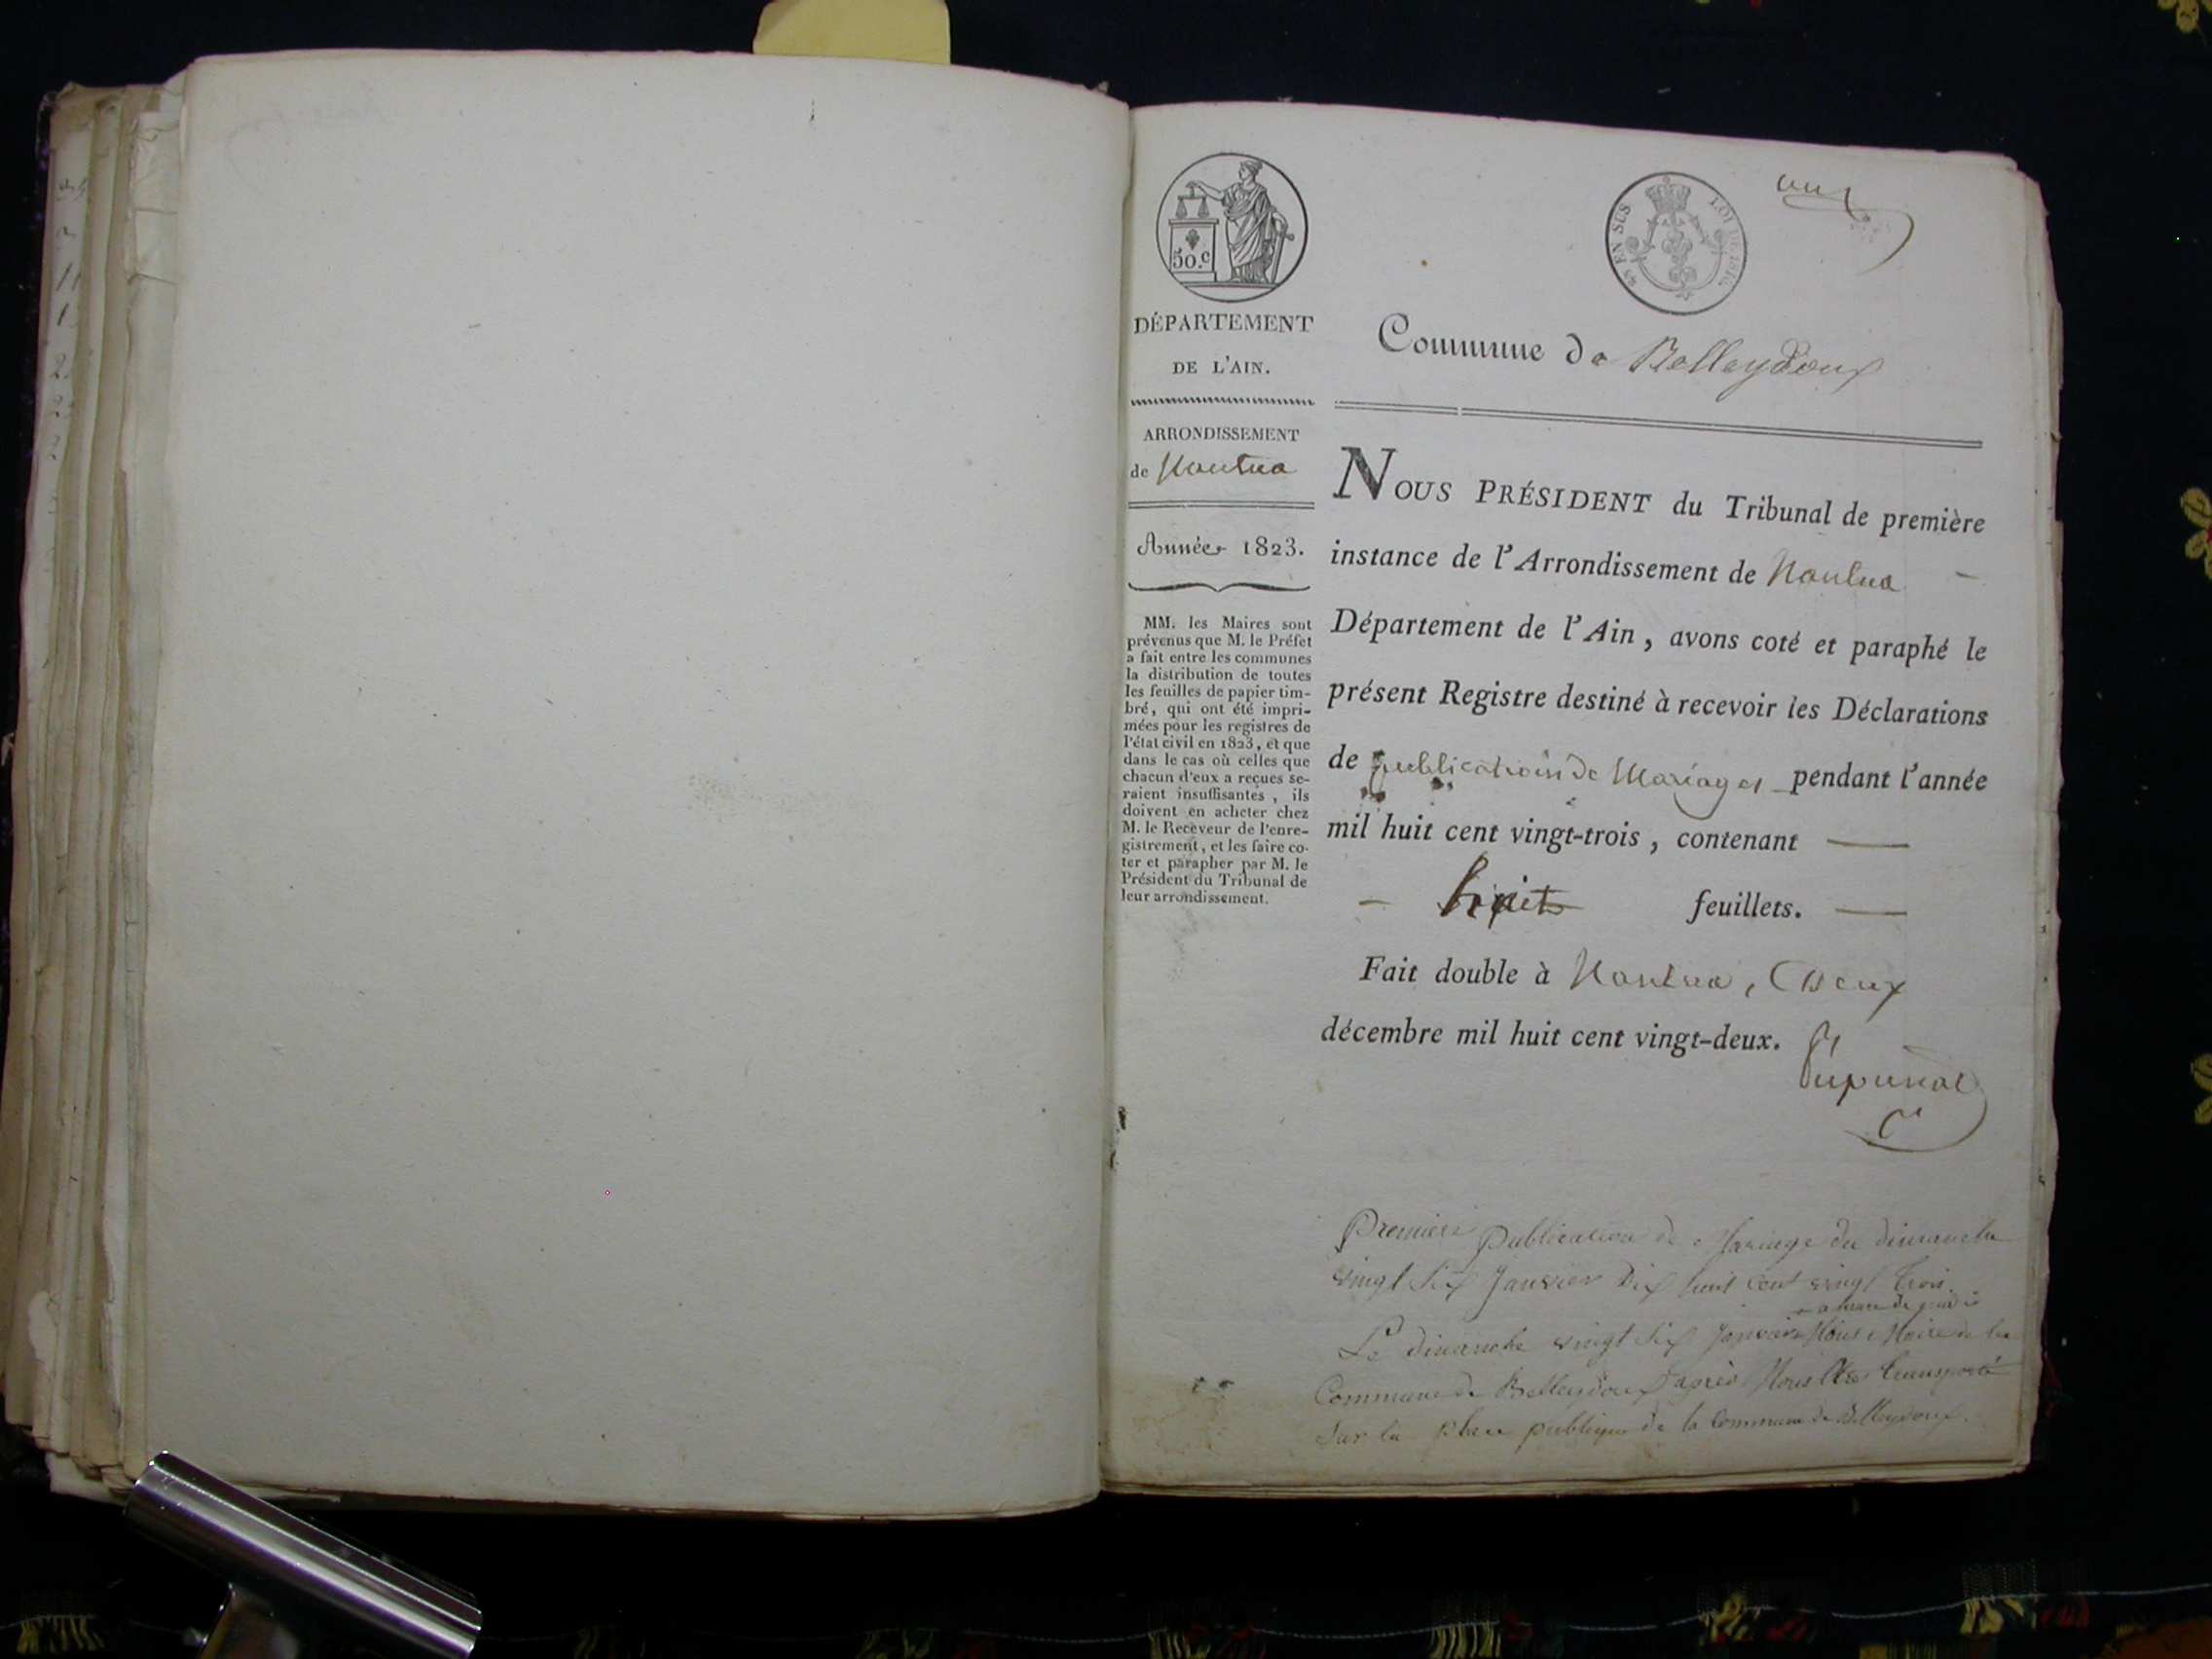 50.c
DÉPARTEMENT
DE L'AIN.
ARRONDISSEMENT
de Nantua
Année 1823.
MM. les Maires sont
prévenus que M. le Préfet
a fait entre les communes
la distribution de toutes
les feuilles de papier tim-
bré, qui ont été impri-
mées pour les registres de
l'état civil en 1823, et que
dans le cas où celles que
chacun d'eux a reçues se-
raient insuffisantes, ils
doivent en acheter chez
M. le Receveur de l'enre-
gistrement, et les faire co-
ter et parapher par M. le
Président du Tribunal de
leur arrondissement.
EN SUS LOI DE 1816
un
Commune de Belleydoux
NOUS PRÉSIDENT du Tribunal de première
instance de l'Arrondissement de Nantua
Département de l'Ain, avons coté et paraphé le
présent Registre destiné à recevoir les Déclarations
de publications de Mariages pendant l'année
mil huit cent vingt-trois, contenant
huit feuillets.
Fait double à Nantua, deux
décembre mil huit cent vingt-deux.
Premiere Publication de Mariage du dimanche
vingt Six Janvier Dix huit cent vingt trois.
a heure de
Le dimanche vingt Six Janvier Nous Maire de la
Commune de Belleydoux après Nous être transporté
Sur la place publique de la Commune de Belleydoux.